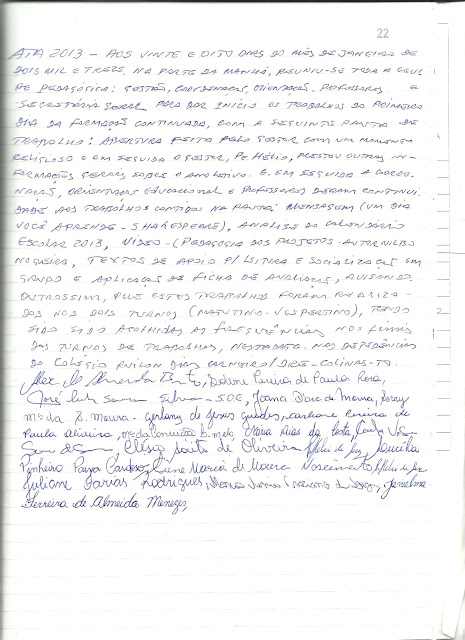 22
ATA 2013 - AOS VINTE E OITO DIAS DO MÊS DE JANEIRO DE
DOIS MIL E TREZE, NA PARTE DA MANHÃ, REUNIU-SE TODA A EQUI
PE PEDAGÓGICA: GESTÃO, COORDENAÇÃO, ORIENTAÇÃO, PROFESSORES E
SECRETÁRIA GERAL PARA DAR INÍCIO OS TRABALHOS DO PRIMEIRO
DIA DA FORMAÇÃO CONTINUADA, COM A SEGUINTE PAUTA DE
TRABALHO: ABERTURA FEITA PELO GESTOR COM UM MOMENTO
RELIGIOSO E EM SEGUIDA O GESTOR, PE. HÉLIO, PRESTOU OUTRAS IN-
FORMAÇÕES GERAIS SOBRE O ANO LETIVO. E, EM SEGUIDA A COORDE
NAÇÃO, ORIENTAÇÃO EDUCACIONAL E PROFESSORES DERAM CONTINUI
DADE AOS TRABALHOS CONTIDOS NA PAUTA: MENSAGEM (UM DIA
VOCÊ APRENDE - SHAKESPEARE), ANÁLISE DO CALENDÁRIO
ESCOLAR 2013, VÍDEO - (PEDAGOGIA DOS PROJETOS - AUTOR NILBO
NOGUEIRA, TEXTOS DE APOIO P/ LEITURA E SOCIALIZAÇÃO EM
GRUPO E APLICAÇÃO DE FICHA DE AVALIAÇÃO, AVISANDO,
OUTROSSIM, QUE ESTES TRABALHOS FORAM REALIZA-
DOS NOS DOIS TURNOS (MATUTINO - VESPERTINO), TENDO
SIDO SIDO ACOLHIDAS AS FREQUÊNCIAS NOS FINAIS
DOS TURNOS DE TRABALHOS, NESTA DATA. NAS DEPENDÊNCIAS
DO COLÉGIO RUILON DIAS CARNEIRO/DRE-COLINAS-TO.
Alex de Almeida, Pereira de Paula Rosa,
José Luís Silva - SOE, Joana D'arc de Moura,
R. Moura. de Jesus Guedes, Carleane Pereira de
Paula Oliveira, b. melo, Maria Dias da Costa,
Elisa de Oliveira
Pinheiro Cardoso, Maria de Moura Nascimento
Juliane Farias Rodrigues, Maria
Ferreira de Almeida Menezes,